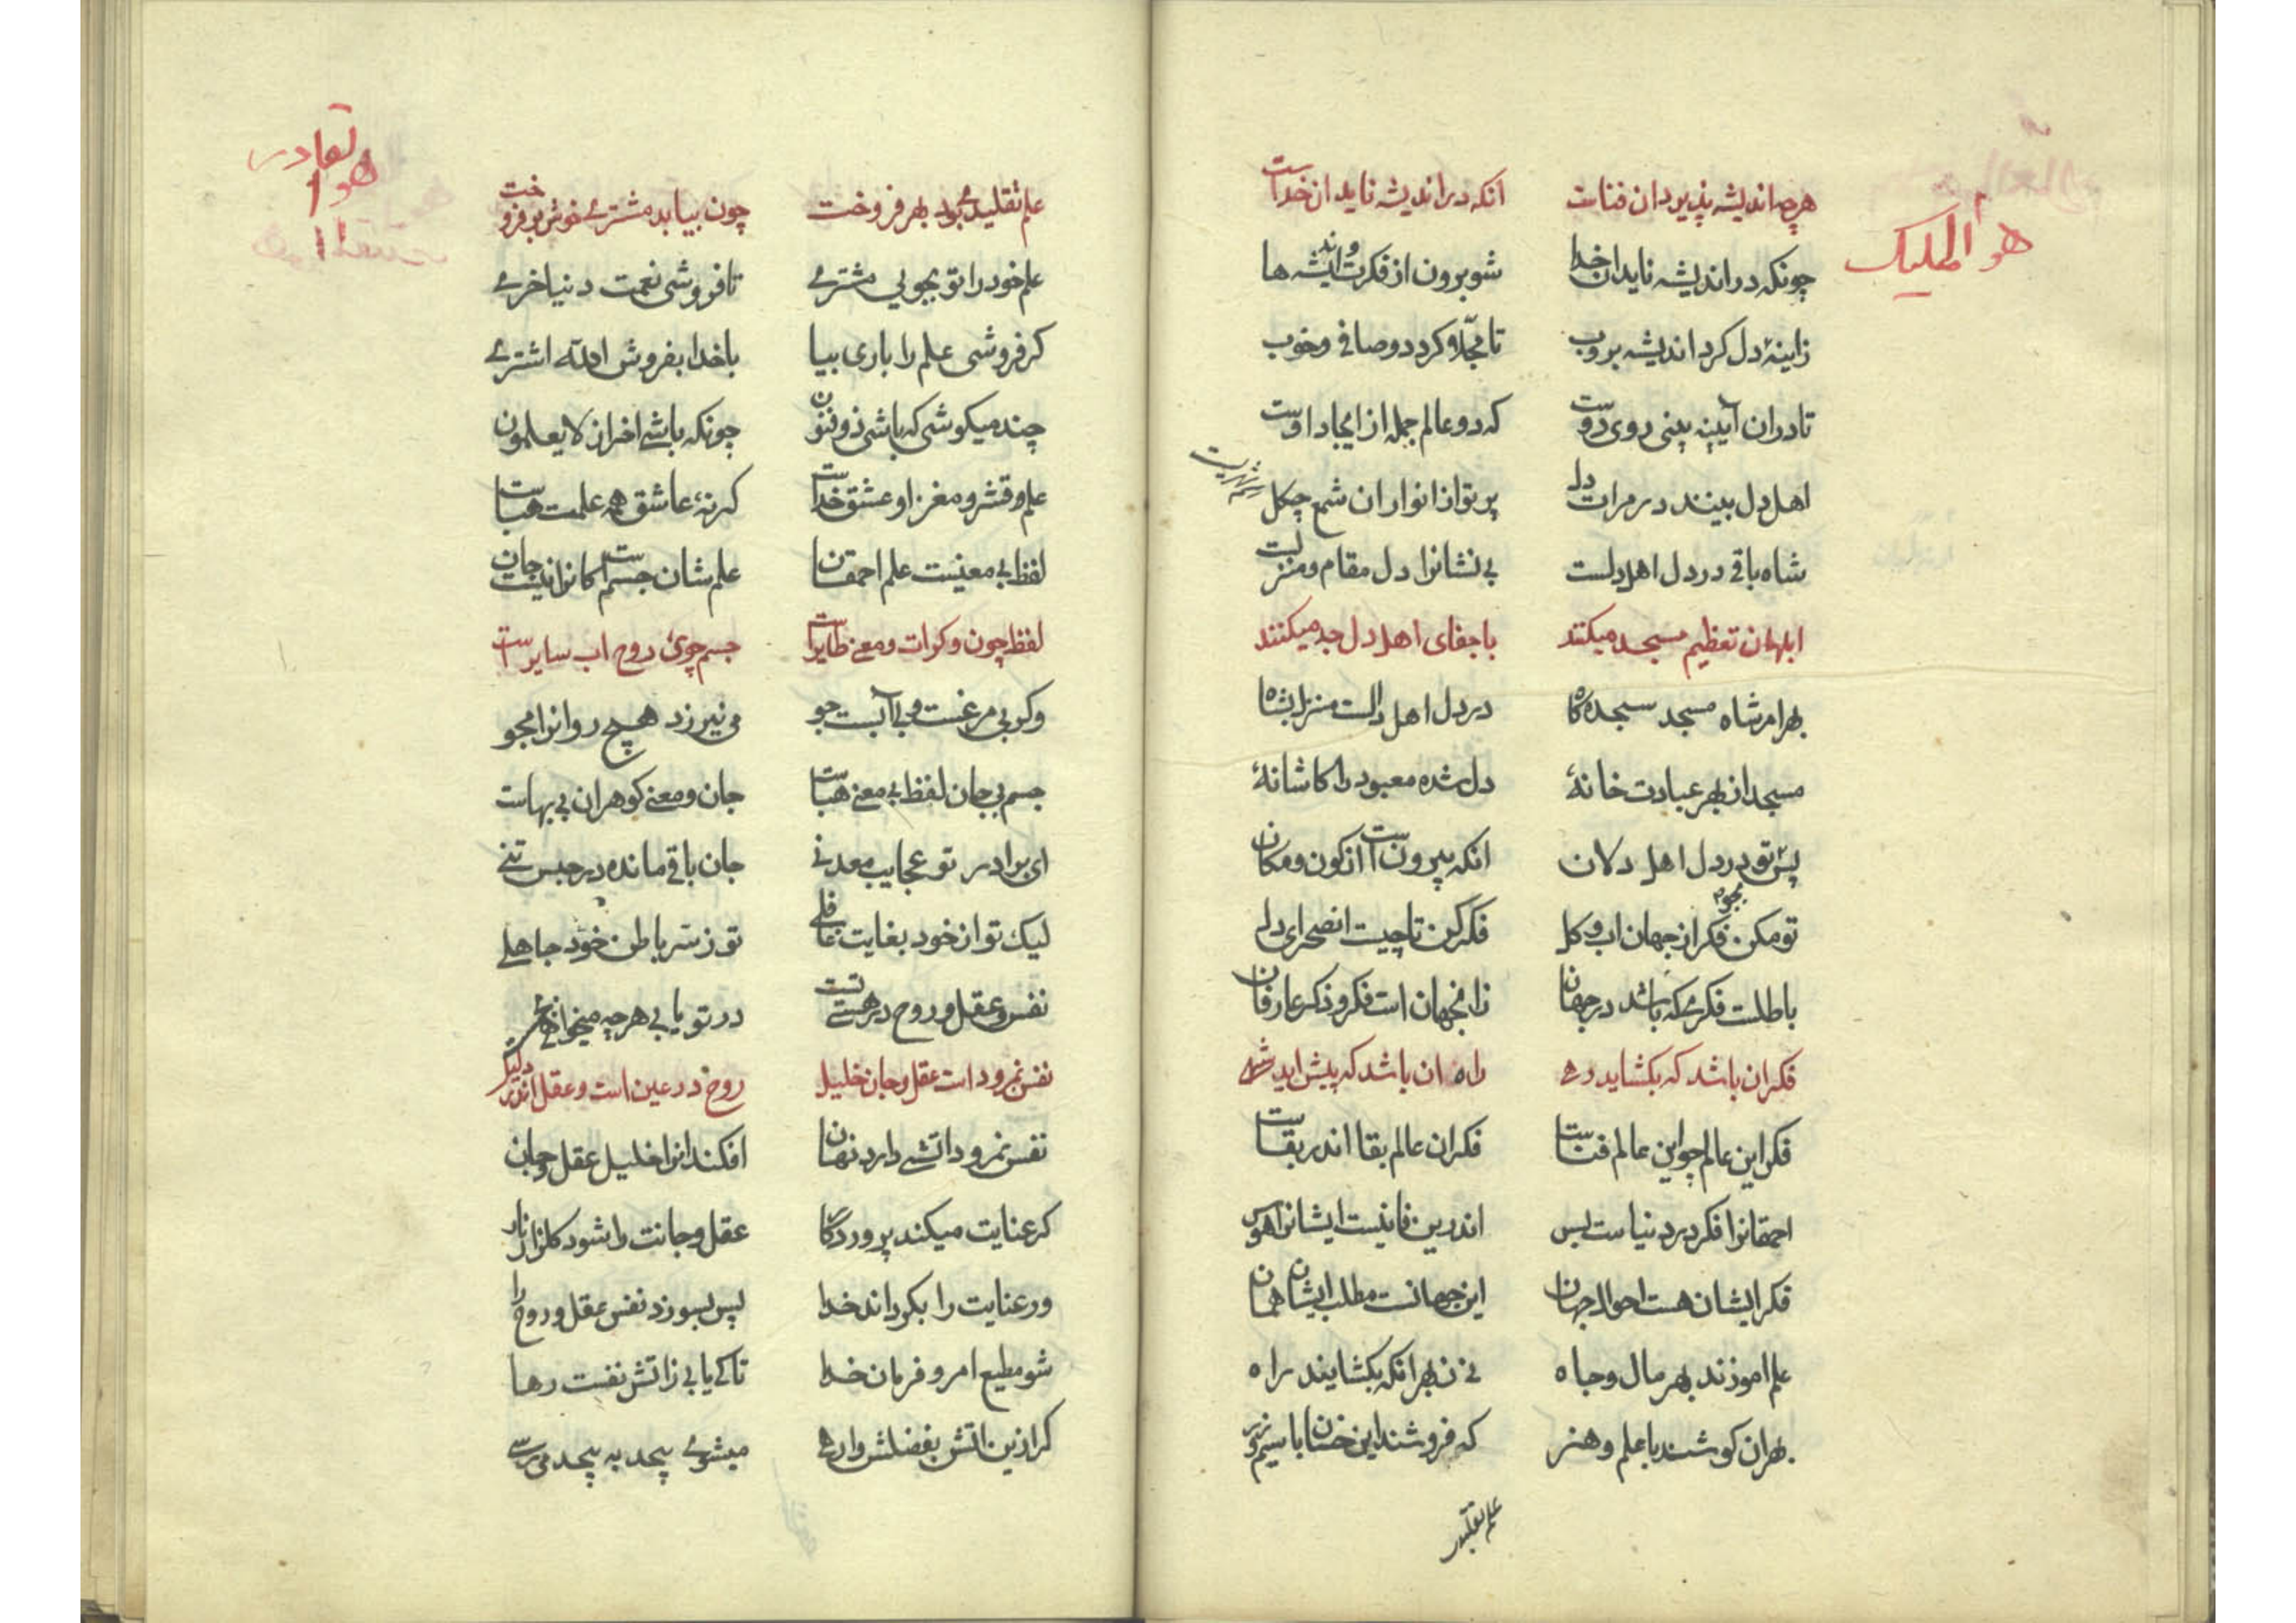 هو الملیک
هرچه اندیشه پذیرد ان فناست انکه در اندیشه ناید ان خداست
چونکه در اندیشه ناید ان خدا شو برون از فکرت و اندیشه ها
زاینهٔ دل کرد اندیشه بروب تا مجلّا کردد و صافی و خوب
تا دران آیینه بینی روی دوست که دو عالم جمله از ایجاد اوست
اهل دل بینند در مرات دل پرتو از انوار ان شمع چکل
شهریست
شاه باقی در دل اهل دلست بی نشانرا دل مقام و منزلست
ابلهان تعظیم مسجد میکنند با جفای اهل دل جد میکنند
بهر امر شاه مسجد سجده کاه در دل اهل دلست منزل بشاه
مسجد از بهر عبادت خانهٔ دل شده معبود را کاشانهٔ
پس تو در دل اهل دلان انکه بیرونست از کون و مکان
بجو
تو مکن فکر از جهان اب و کل فکر کن تا چیست انصحرای دل
باطلست فکری که باشد در جهان زانجهان است فکر و ذکر عارفان
فکر ان باشد که بکشاید رهی راه ان باشد که پیش اید شهی
فکر این عالم چو این عالم فناست فکر ان عالم بقا اندر بقاست
احمقانرا فکر در دنیاست بس اندرین فانیست ایشانرا هوس
فکر ایشان هست احوال جهان این جهانست مطلب ایشان همان
علم اموزند بهر مال و جاه نی ز بهر انکه بکشایند راه
بهر ان کوشند با علم و هنر که فروشند این خسان با سیم و زر
علم تقلید
هو القادر
علم تقلیدی بود بهر فروخت چون بیابد مشتری خوش بر فروخت
علم خود را تو بجویی مشتری تا فروشی نعمت دنیا خری
کر فروشی علم را باری بیا با خدا بفروش الله اشتری
چند میکوشی که باشی ذوفنون چونکه باشی اخر از لا یعلمون
علم و قشر و مغز او عشق خداست کر نهٔ عاشق همه علمت هباست
لفظ بی معنیست علم احمقان علم شان جسمست کانرا نیست جان
لفظ چون وکرات و معنی طایراست جسم جوی روح اب سایر است
وکر بی مرغست و بی آبست جو می نیرزد هیچ روانرا مجو
جسم بی جان لفظ بی معنی هباست جان و معنی کوهران بی بهاست
ای برادر تو عجایب معدنی جان باقی مانده در حبس تنی
لیک تو از خود بغایت غافلی تو ز سّر باطن خود جاهلی
نفس و عقل و روح در هستیست در تو یابی هرچه میخواهی
نفس نمرود است عقل و جان خلیل روح در عین است و عقل اندر دلیل
نفس نمرود اتشی دارد نهان افکند انرا خلیل عقل و جان
کر عنایت میکند پروردکار عقل و جانت را شود کلزار نار
ور عنایت را بکرداند خدا پس بسوزد نفس عقل و روح را
شو مطیع امر و فرمان خدا تا کی یابی ز اتش نفست رها
کر ازین اتش بفضلش وارهی میشوی بیحد به بیحد می رسی